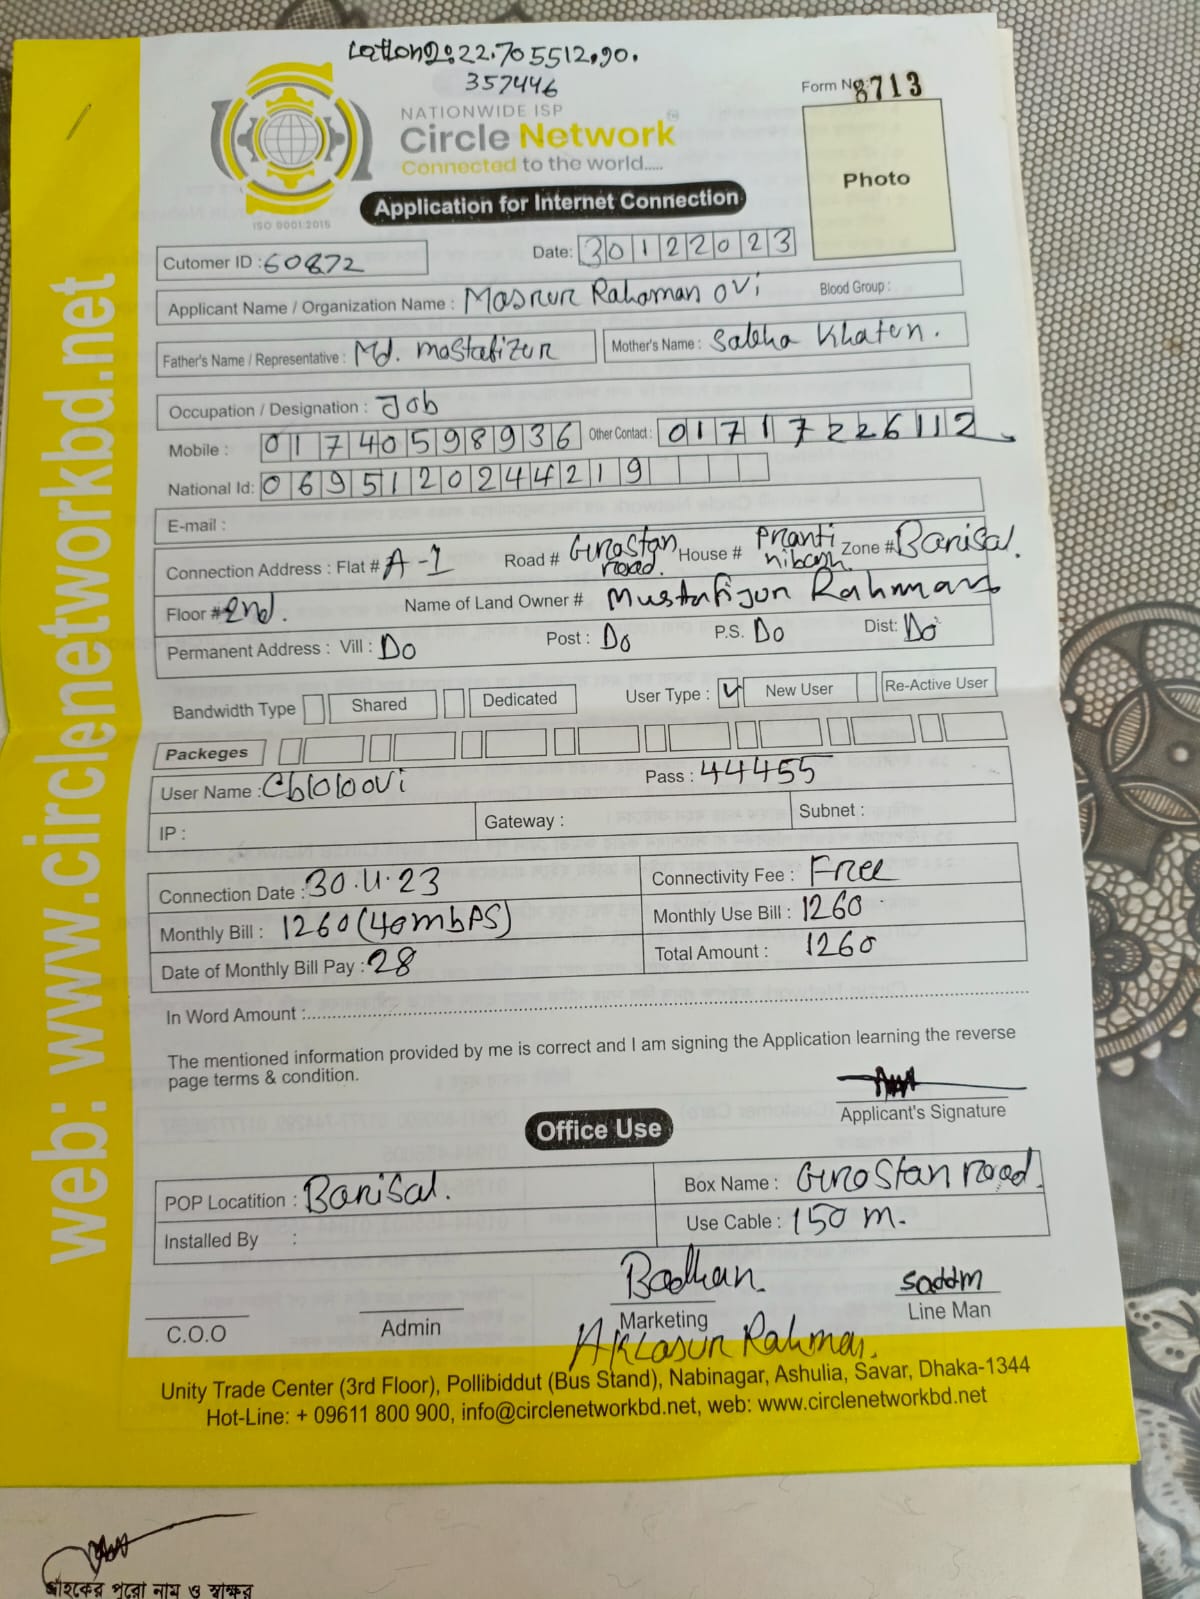 Lationg:22.705512,90.
357446
Form No: 8713
NATIONWIDE ISP
Circle Network
Connected to the world.....
ISO 9001:2015
Application for Internet Connection
Photo
Cutomer ID : 60872
Date: 30122023
Applicant Name / Organization Name : Masrur Rahaman ovi Blood Group :
Father's Name / Representative : Md. mostafizur Mother's Name : Saleha Khaton.
Occupation / Designation : Job
Mobile : 01740598936 Other Contact : 01717226112
National Id: 0695120244219
E-mail :
Connection Address : Flat # A-1 Road # Gurostan road. House # Pranti nibash. Zone # Barisal.
Floor # 2nd. Name of Land Owner # Mustafijur Rahman
Permanent Address : Vill : Do Post : Do P.S. Do Dist: Do
Bandwidth Type Shared Dedicated User Type : ✓ New User Re-Active User
Packeges
User Name : Cb1010ovi Pass : 44455
IP : Gateway : Subnet :
Connection Date : 30.11.23 Connectivity Fee : Free
Monthly Bill : 1260 (40mbPS) Monthly Use Bill : 1260
Date of Monthly Bill Pay : 28 Total Amount : 1260
In Word Amount :
The mentioned information provided by me is correct and I am signing the Application learning the reverse
page terms & condition.
Applicant's Signature
Office Use
POP Locatition : Barisal. Box Name : Gurostan road.
Installed By : Use Cable : 150 m.
Badhan. saddm
C.O.O Admin Marketing Line Man
Rahman.
Unity Trade Center (3rd Floor), Pollibiddut (Bus Stand), Nabinagar, Ashulia, Savar, Dhaka-1344
Hot-Line: + 09611 800 900, info@circlenetworkbd.net, web: www.circlenetworkbd.net
web: www.circlenetworkbd.net
গ্রাহকের পুরো নাম ও স্বাক্ষর